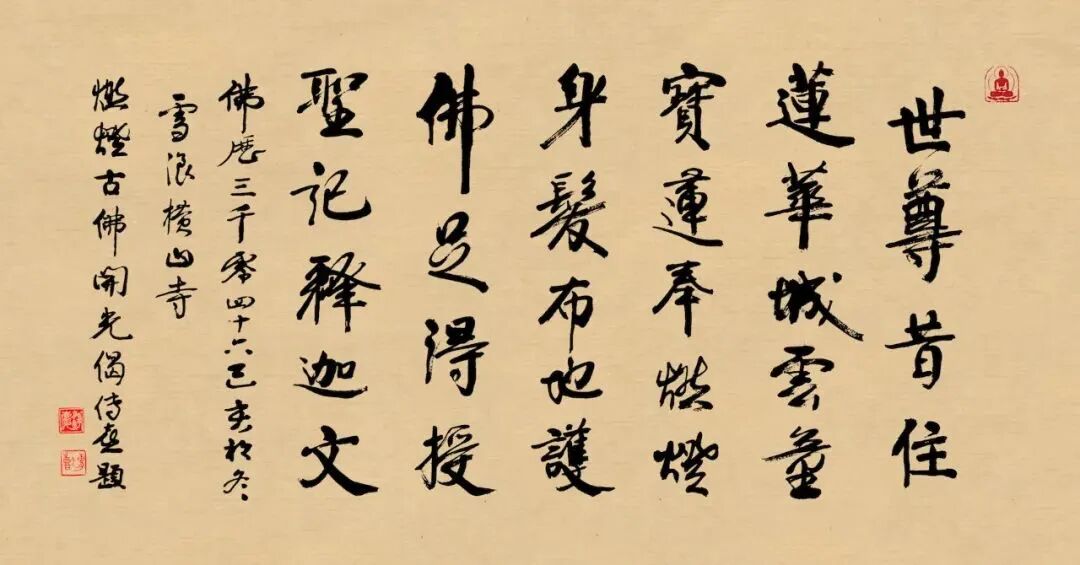 世尊昔住
蓮華城雲童
寶蓮奉燃燈
身髮布地護
佛足得授
聖記釋迦文
佛歷三千零四十六己亥初冬
雪浪橫山寺
燃燈古佛開光偈傳喜題